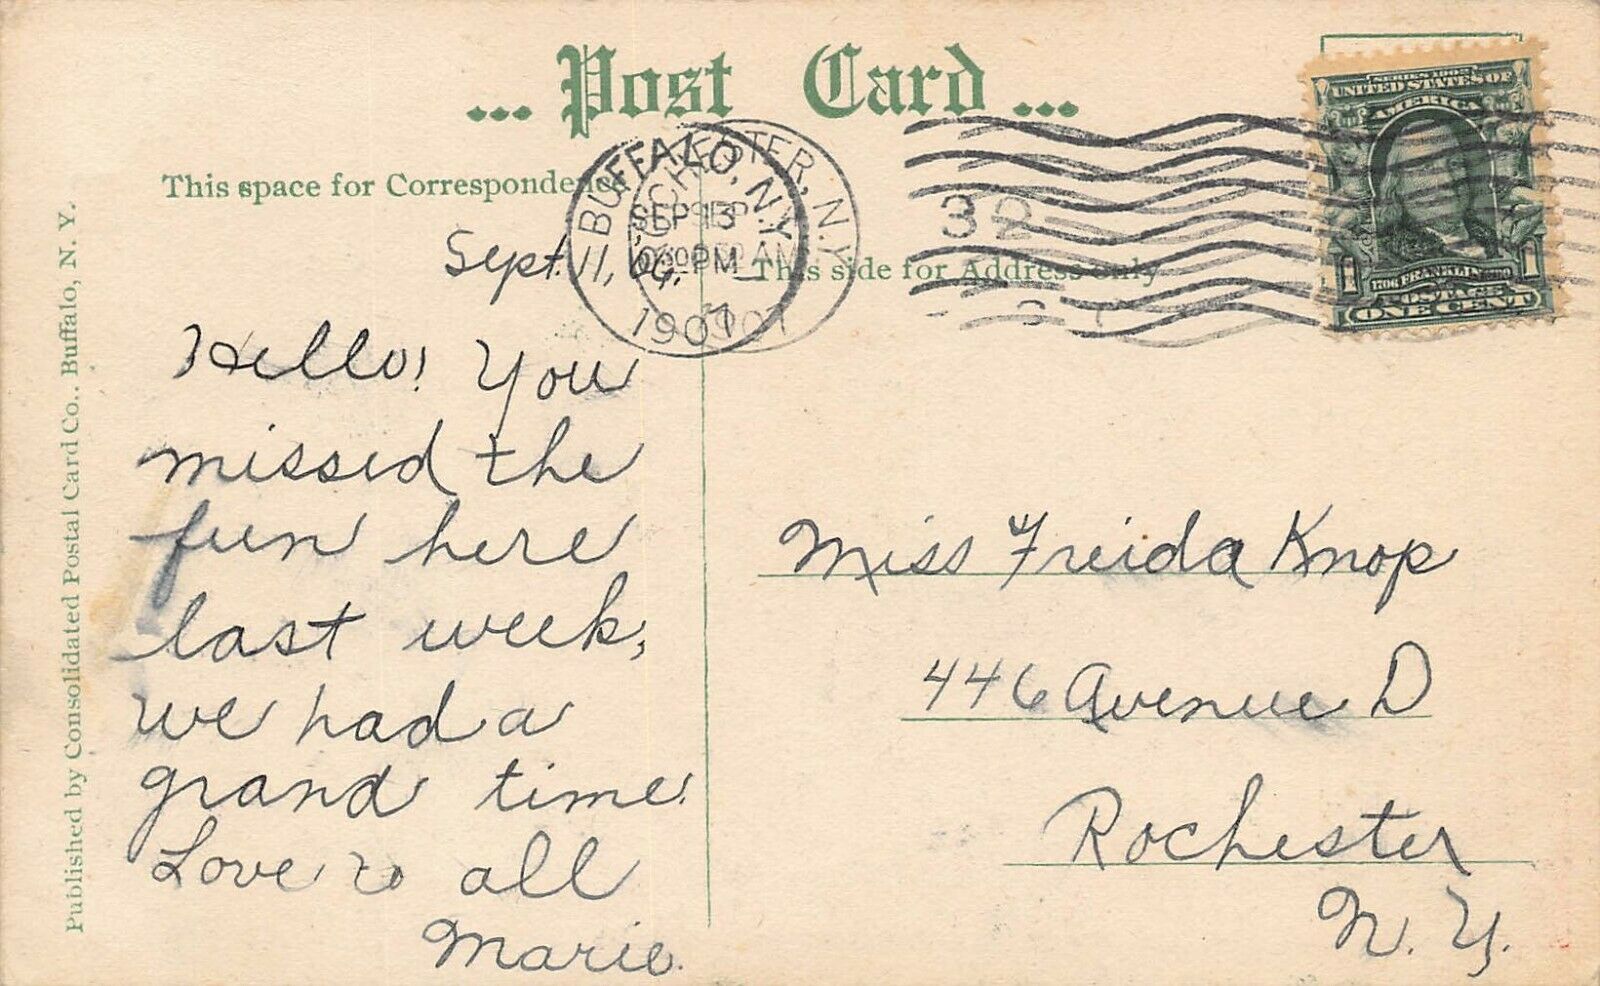 ... Post Card ...
This space for Correspondence
This side for Address only
BUFFALO, N.Y.
SEP 13
PM
1907
ROCHESTER, N.Y.
SEP
AM
1907
32
SERIES 1902
UNITED STATES OF
AMERICA
1706 FRANKLIN 1790
POSTAGE
1 ONE CENT 1
Sept. 11,
Hello! You
missed the
fun here
last week,
we had a
grand time.
Love to all
Marie.
Miss Freida Knop
446 Avenue D
Rochester
N. Y.
Published by Consolidated Postal Card Co., Buffalo, N. Y.